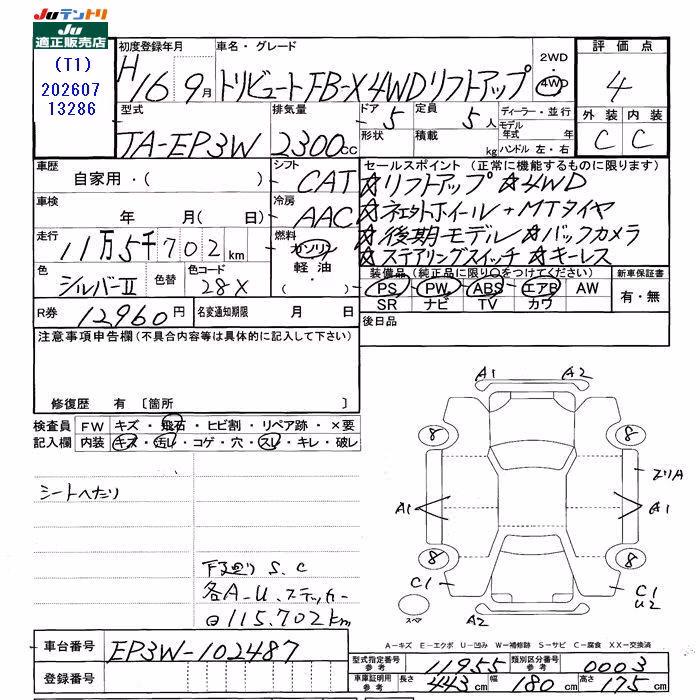 Juテントリ
Ju
適正販売店
(T1)
202607
13286
初度登録年月
H16年 9月
車名・グレード
トリビュートFB-X 4WDリフトアップ
2WD
・
4WD
評価点
4
外装 内装
C C
型式
TA-EP3W
排気量
2300cc
ドア・形状
5
定員
5人
積載 kg
ディーラー・並行
モデル年式 年
ハンドル 左・右
車歴
自家用・( )
シフト
CAT
車検
年 月( 日)
冷房
AAC
走行
11万5千702km
燃料
ガソリン
軽油
・
色
シルバーⅡ
色替
色コード
28X
R券
12960円
名変通知期限 月 日
セールスポイント(正常に機能するものに限ります)
☆リフトアップ ☆4WD
☆社外ホイール+MTタイヤ
☆後期モデル ☆バックカメラ
☆ステアリングスイッチ ☆キーレス
装備品(純正品に限り○をつけてください)
PS・PW・ABS・エアB・AW
SR ナビ TV カワ
新車保証書
有・無
後日品
注意事項申告欄(不具合内容等は具体的に記入して下さい)
修復歴 有 〔箇所 〕
検査員記入欄
FW キズ・飛石・ヒビ割・リペア跡・×要
内装 キズ・汚レ・コゲ・穴・スレ・キレ・破レ
シートへたり
下廻り S.C
各A-U.ステッカー
115.702km
A1 A2
8 8
エクリA
A1 A1
8 8
C1 C1
U2
スペア
A2
A-キズ E-エクボ U-凹み W-補修跡 S-サビ C-腐食 XX-交換済
車台番号
EP3W-102487
登録番号
型式指定番号参考 11955 類別区分番号参考 0003
車庫証明用参考 長さ 443cm 幅 180cm 高さ 175cm